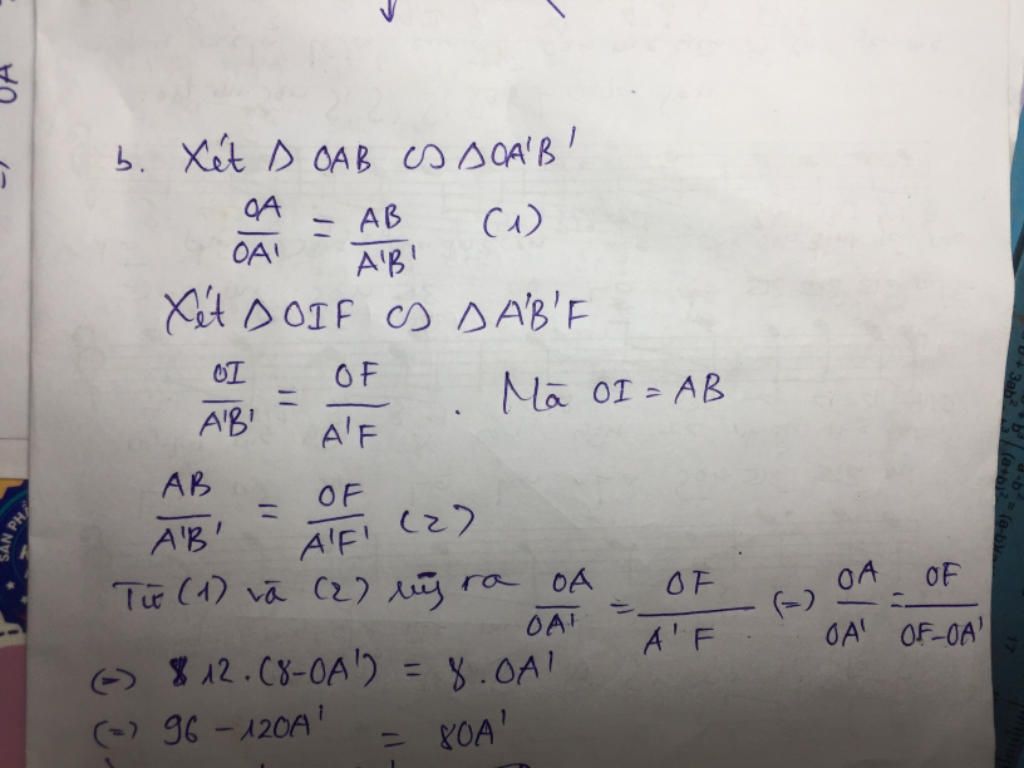 OA
b. Xét Δ OAB ∽ ΔOA'B'
OA/OA' = AB/A'B' (1)
Xét Δ OIF ∽ Δ A'B'F
OI/A'B' = OF/A'F . Mà OI = AB
AB/A'B' = OF/A'F' (2)
Từ (1) và (2) suy ra OA/OA' = OF/A'F (=) OA/OA' = OF/OF-OA'
(=) 12.(8-OA') = 8.OA'
(=) 96 - 12OA' = 8OA'
SẢN PH